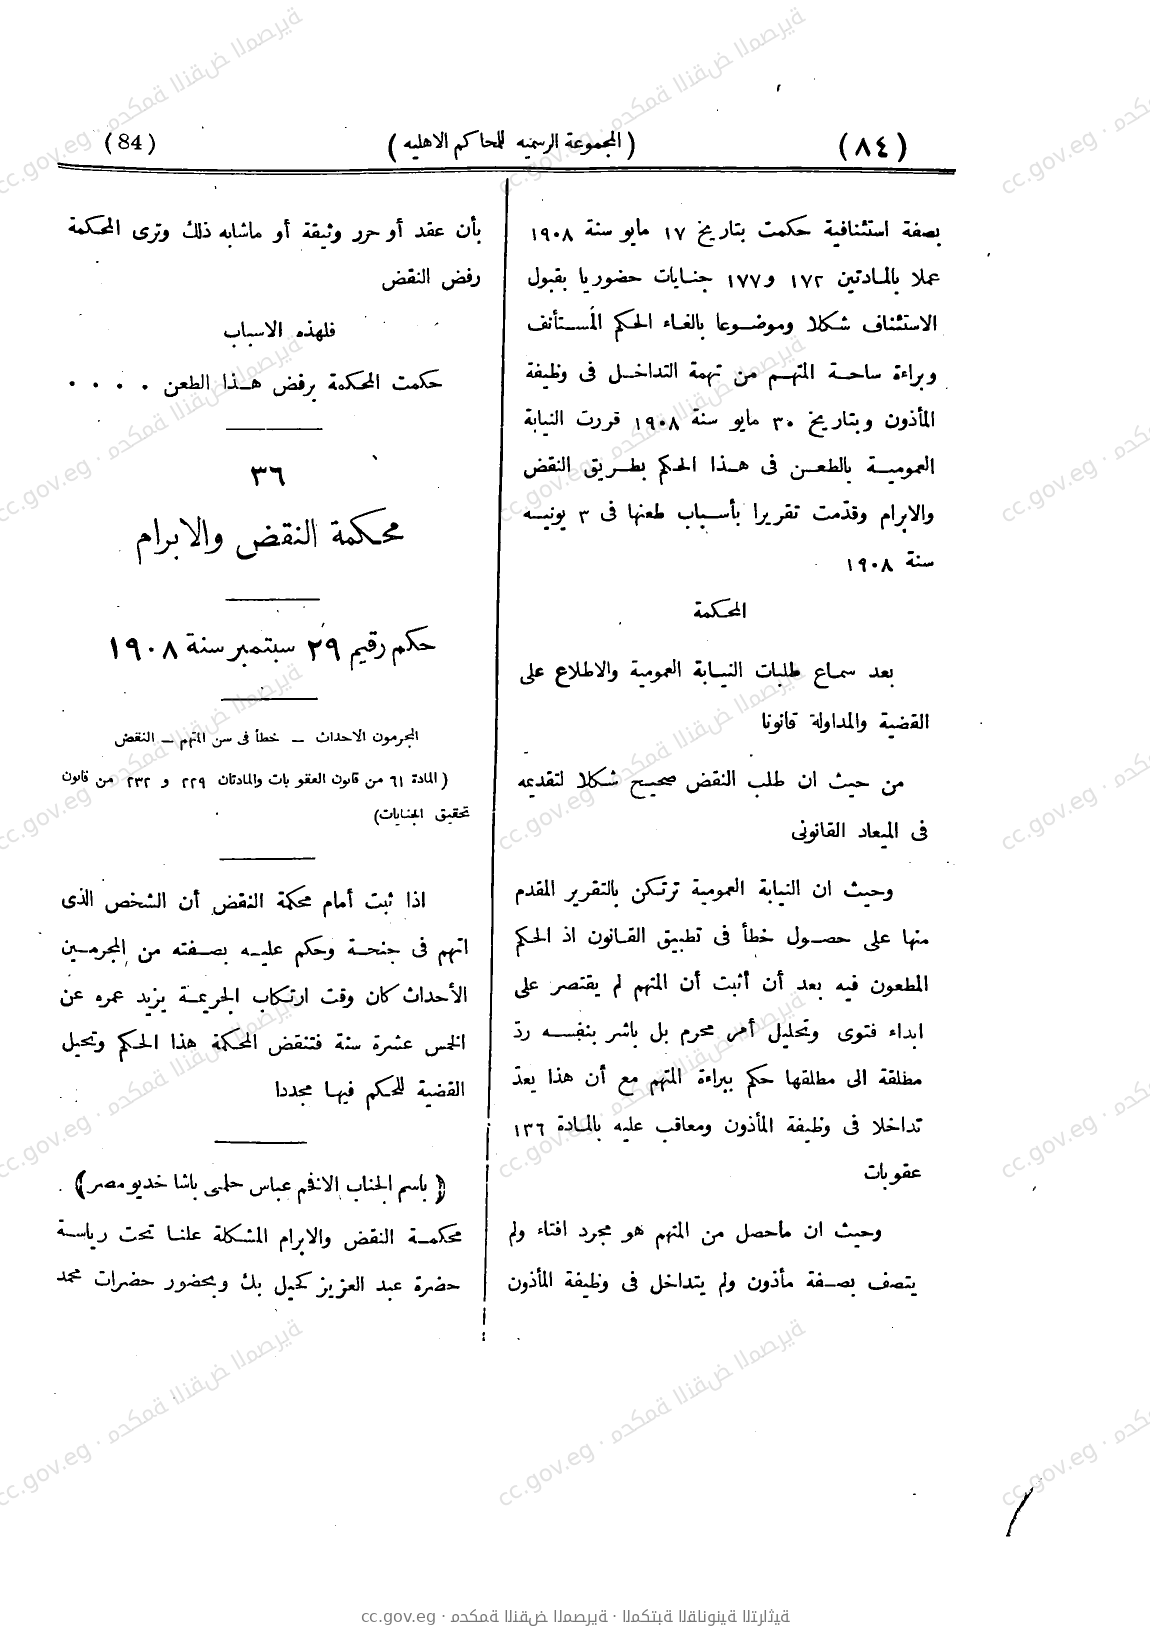 (٨٤)
(المجموعة الرسميه للمحاكم الاهليه)
(84)
بصفة استئنافية حكمت بتاريخ ١٧ مايو سنة ١٩٠٨
عملا بالمادتين ١٧٢ و١٧٧ جنايات حضوريا بقبول
الاستئناف شكلا وموضوعا بالغاء الحكم المستأنف
وبراءة ساحة المتهم من تهمة التداخل فى وظيفة
المأذون وبتاريخ ٣٠ مايو سنة ١٩٠٨ قررت النيابة
العمومية بالطعن فى هذا الحكم بطريق النقض
والابرام وقدّمت تقريرا بأسباب طعنها فى ٣ يونيه
سنة ١٩٠٨
المحكمة
بعد سماع طلبات النيابة العمومية والاطلاع على
القضية والمداولة قانونا
من حيث ان طلب النقض صحيح شكلا لتقديمه
فى الميعاد القانونى
وحيث ان النيابة العمومية ترتكن بالتقرير المقدم
منها على حصول خطأ فى تطبيق القانون اذ الحكم
المطعون فيه بعد أن أثبت أن المتهم لم يقتصر على
ابداء فتوى وتحليل أمر محرم بل باشر بنفسه ردّ
مطلقة الى مطلقها حكم ببراءة المتهم مع أن هذا يعدّ
تداخلا فى وظيفة المأذون ومعاقب عليه بالمادة ١٣٦
عقوبات
وحيث ان ماحصل من المتهم هو مجرد افتاء ولم
يتصف بصفة مأذون ولم يتداخل فى وظيفة المأذون
بأن عقد أو حرر وثيقة أو ماشابه ذلك وترى المحكمة
رفض النقض
فلهذه الاسباب
حكمت المحكمة برفض هذا الطعن . . . .
٣٦
محكمة النقض والابرام
حكم رقيم ٢٩ سبتمبر سنة ١٩٠٨
المجرمون الاحداث – خطأ فى سن المتهم – النقض
(المادة ٦١ من قانون العقوبات والمادتان ٢٢٩ و ٢٣٢ من قانون
تحقيق الجنايات)
اذا ثبت أمام محكمة النقض أن الشخص الذى
اتهم فى جنحة وحكم عليه بصفته من المجرمين
الأحداث كان وقت ارتكاب الجريمة يزيد عمره عن
الخمس عشرة سنة فتنقض المحكمة هذا الحكم وتحيل
القضية للحكم فيها مجددا
(باسم الجناب الافخم عباس حلمى باشا خديو مصر)
محكمة النقض والابرام المشكلة علنا تحت رياسة
حضرة عبد العزيز كحيل بك وبحضور حضرات محمد
cc.gov.eg · محكمة النقض المصرية · المكتبة القانونية التراثية